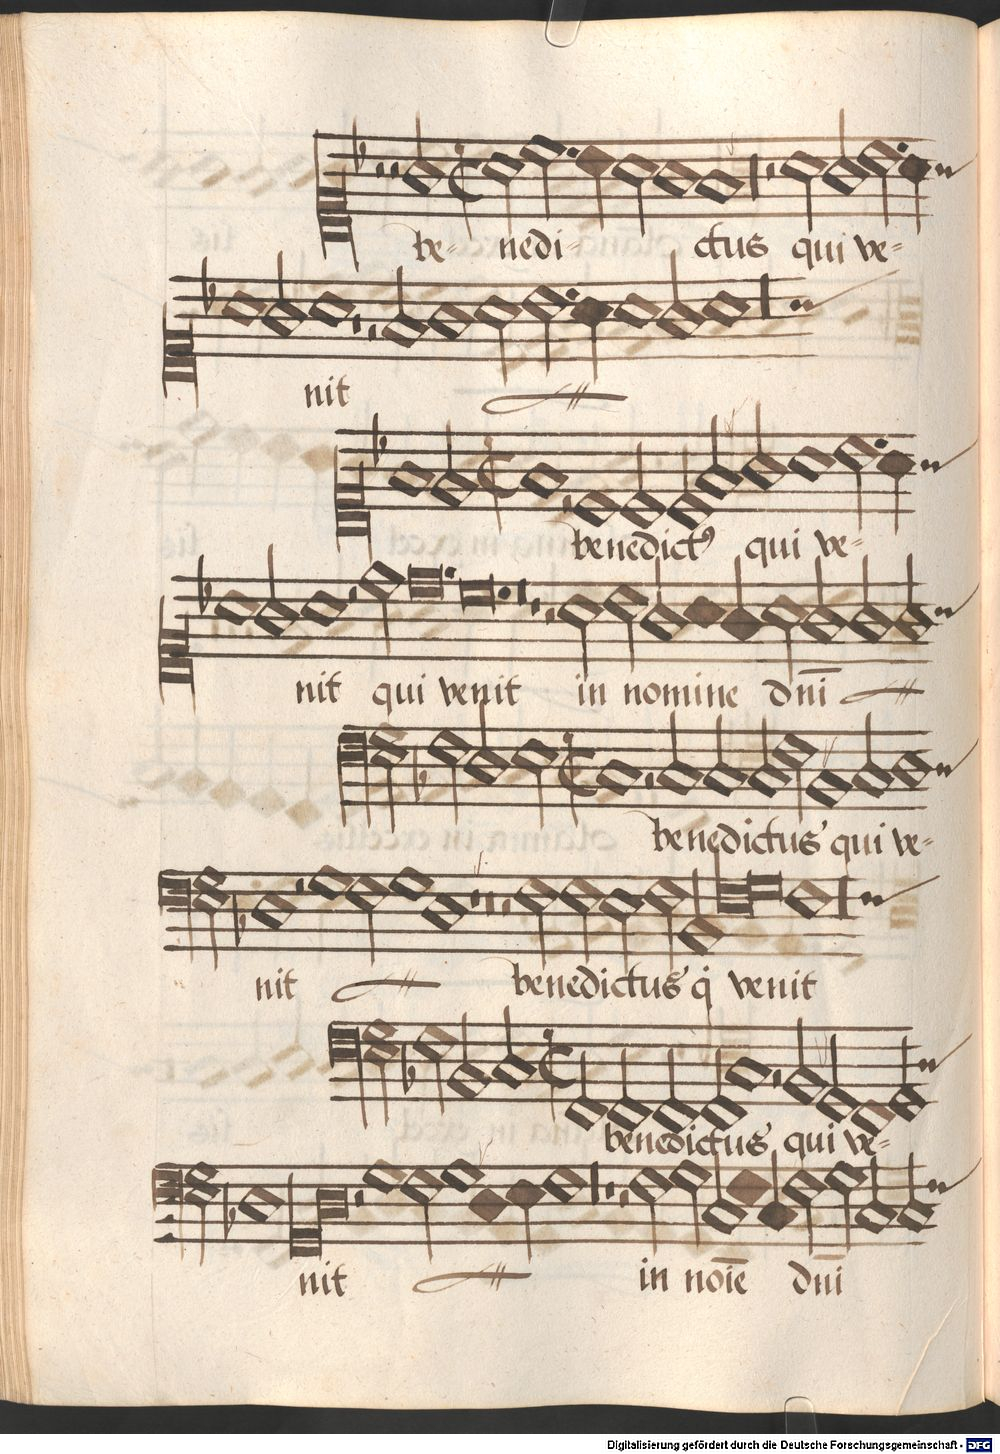 be- nedi- ctus qui ve-
nit
benedictꝰ qui ve-
nit qui venit in nomine dn̄i
benedictus qui ve-
nit benedictus q̇ venit
benedictus qui ve-
nit in noīe dn̄i
Digitalisierung gefördert durch die Deutsche Forschungsgemeinschaft - DFG